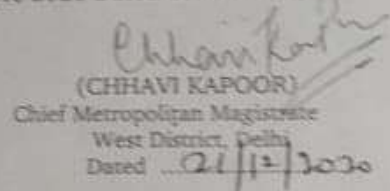 Chhavi Kapoor
(CHHAVI KAPOOR)
Chief Metropolitan Magistrate
West District, Delhi
Dated ...21/12/2020